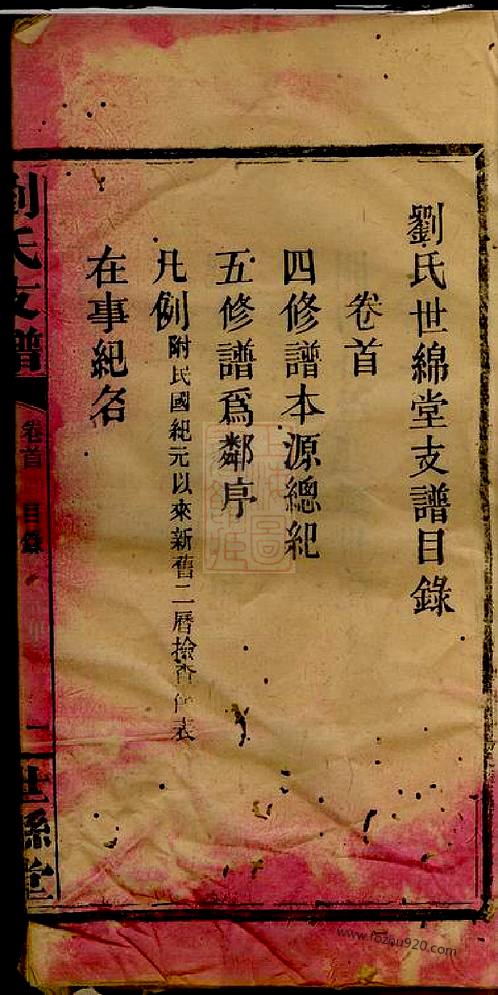 劉氏世綿堂支譜目錄
卷首
四修譜本源總紀
五修譜爲鄰序
凡例附民國紀元以來新舊二曆檢查表
在事紀名
劉氏支譜
卷首 目錄
一
世綿堂
www.fozhu920.com